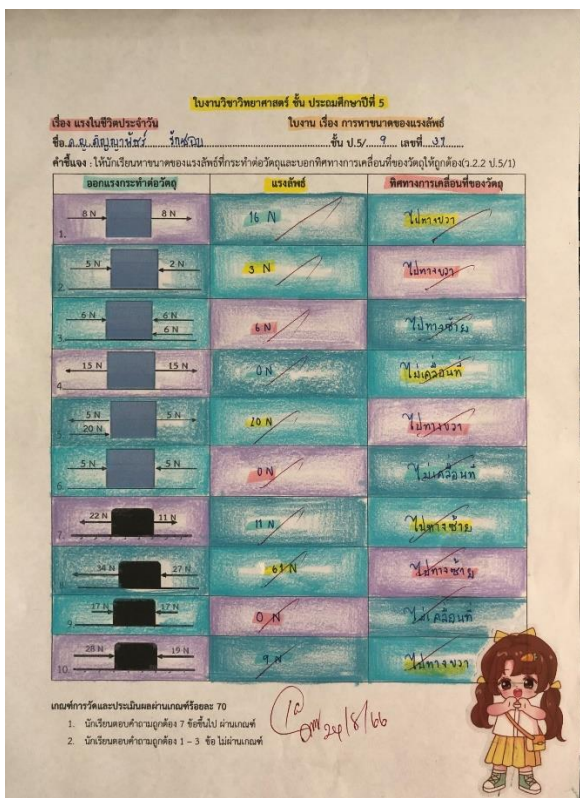 ใบงานวิชาวิทยาศาสตร์ ชั้น ประถมศึกษาปีที่ 5
เรื่อง แรงในชีวิตประจำวัน ใบงาน เรื่อง การหาขนาดของแรงลัพธ์
ชื่อ ด.ญ. รักชอบ ชั้น ป.5/ 9 เลขที่
คำชี้แจง : ให้นักเรียนหาขนาดของแรงลัพธ์ที่กระทำต่อวัตถุและบอกทิศทางการเคลื่อนที่ของวัตถุให้ถูกต้อง(ว.2.2 ป.5/1)
ออกแรงกระทำต่อวัตถุ แรงลัพธ์ ทิศทางการเคลื่อนที่ของวัตถุ
1. 8 N 8 N 16 N ไปทางขวา
2. 5 N 2 N 3 N ไปทางขวา
3. 6 N 6 N 6 N 6 N ไปทางซ้าย
4. 15 N 15 N 0 N ไม่เคลื่อนที่
5 N 5 N 20 N 20 N ไปทางขวา
6. 5 N 5 N 0 N ไม่เคลื่อนที่
7. 22 N 11 N 11 N ไปทางซ้าย
8. 34 N 27 N 61 N ไปทางซ้าย
9. 17 N 17 N 0 N ไม่เคลื่อนที่
10. 28 N 19 N 9 N ไปทางขวา
เกณฑ์การวัดและประเมินผลผ่านเกณฑ์ร้อยละ 70
1. นักเรียนตอบคำถามถูกต้อง 7 ข้อขึ้นไป ผ่านเกณฑ์
2. นักเรียนตอบคำถามถูกต้อง 1 – 3 ข้อ ไม่ผ่านเกณฑ์
10
24/8/66